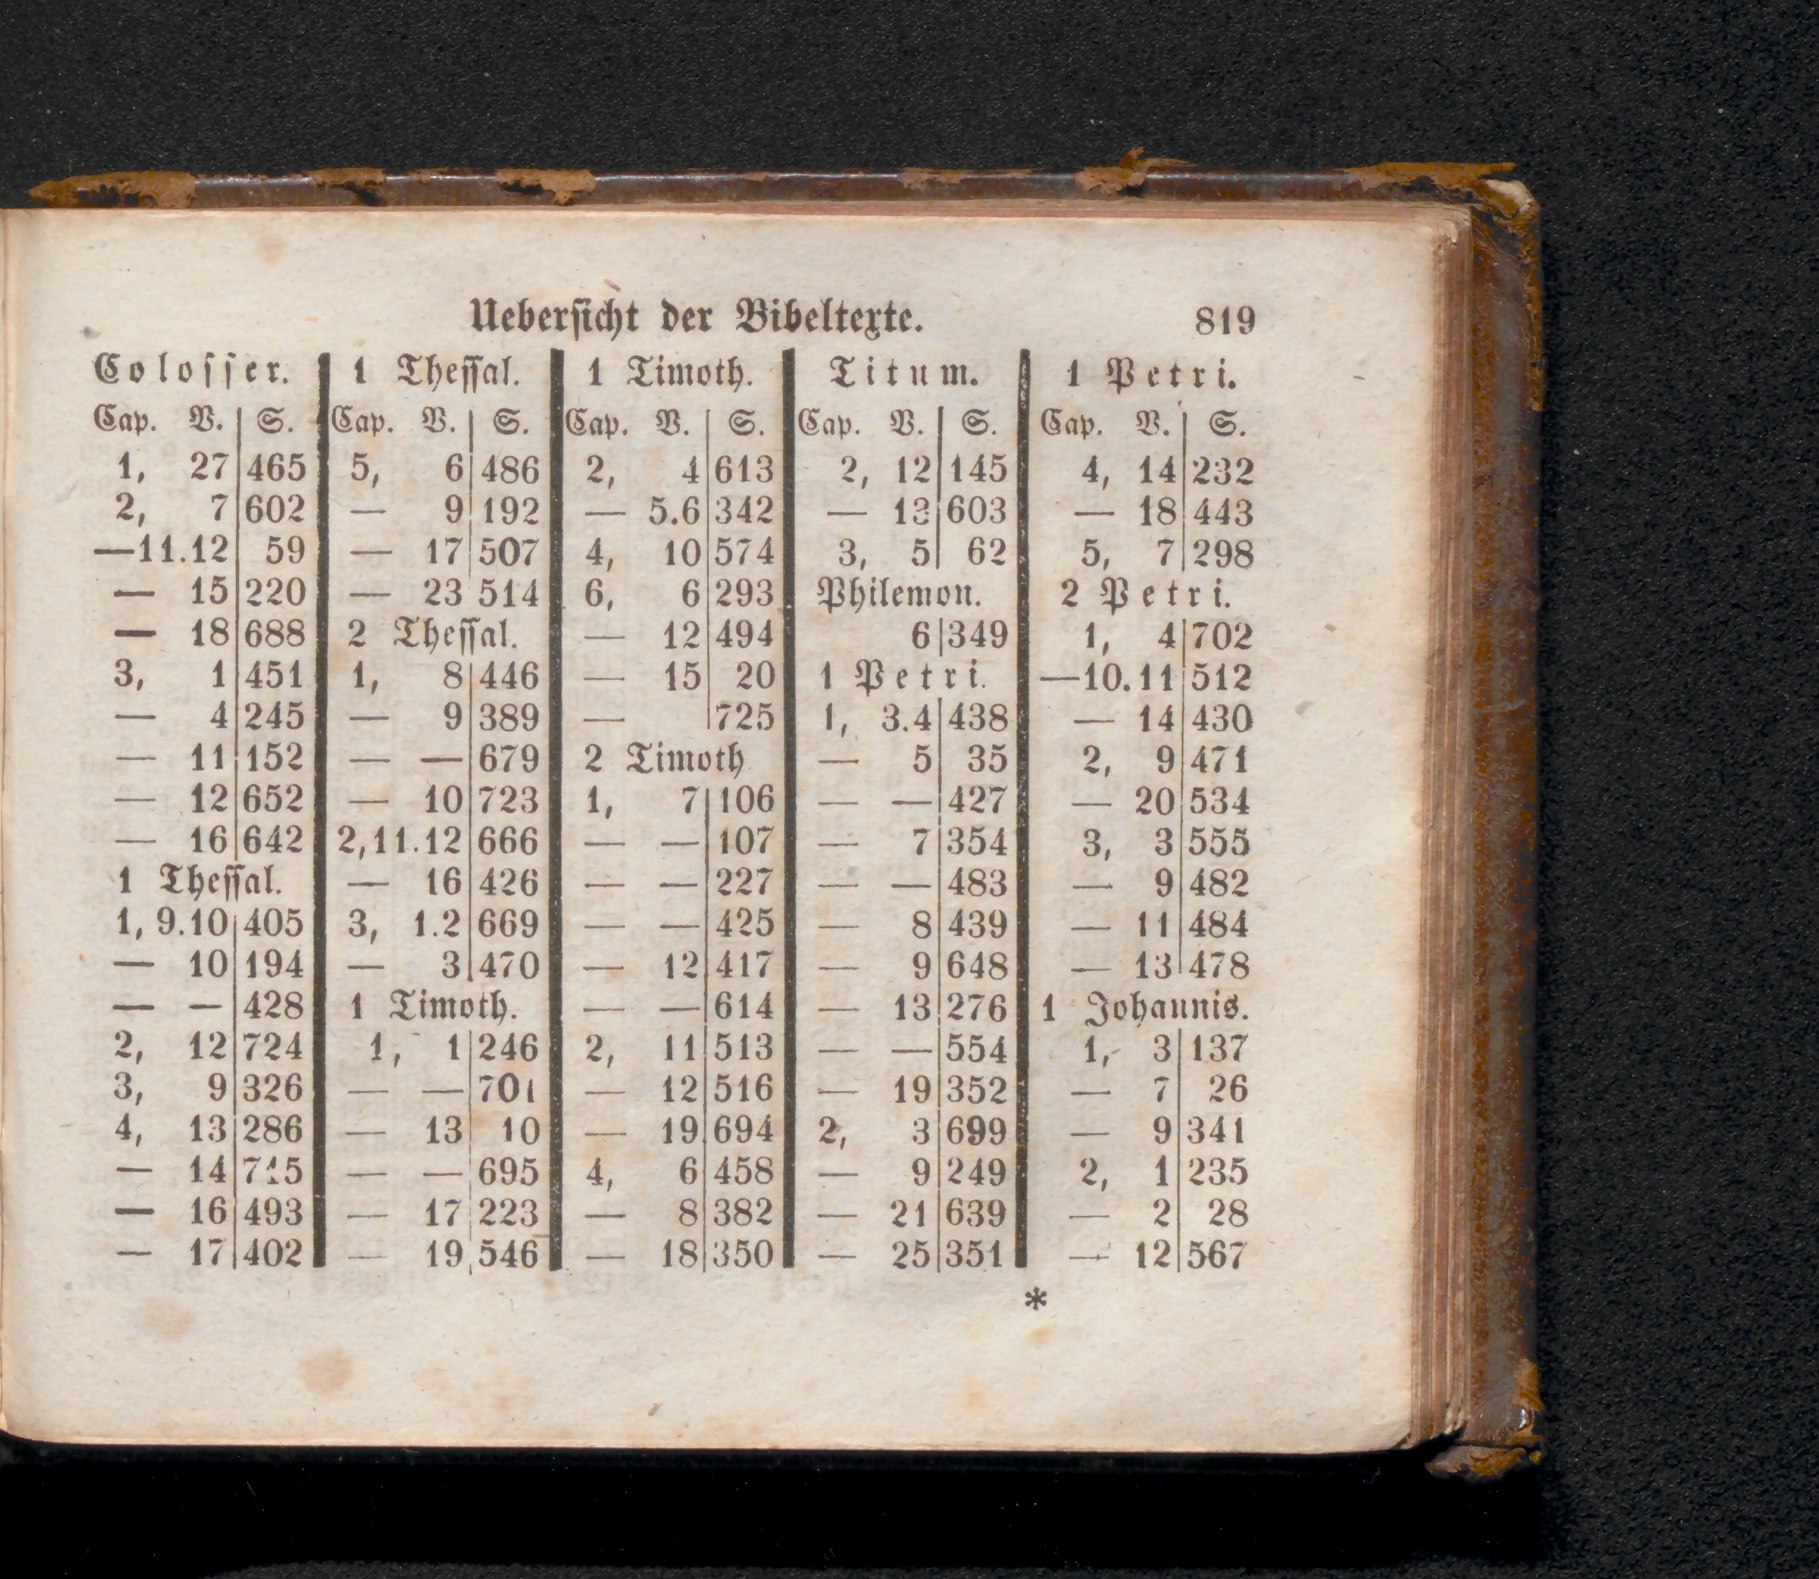 Uebersicht der Bibeltexte. 819
Colosser.
Cap. V. S.
1, 27 465
2, 7 602
—11.12 59
— 15 220
— 18 688
3, 1 451
— 4 245
— 11 152
— 12 652
— 16 642
1 Thessal.
1, 9.10 405
— 10 194
— — 428
2, 12 724
3, 9 326
4, 13 286
— 14 715
— 16 493
— 17 402
1 Thessal.
Cap. V. S.
5, 6 486
— 9 192
— 17 507
— 23 514
2 Thessal.
1, 8 446
— 9 389
— — 679
— 10 723
2,11.12 666
— 16 426
3, 1.2 669
— 3 470
1 Timoth.
1, 1 246
— — 701
— 13 10
— — 695
— 17 223
— 19 546
1 Timoth.
Cap. V. S.
2, 4 613
— 5.6 342
4, 10 574
6, 6 293
— 12 494
— 15 20
— 725
2 Timoth
1, 7 106
— — 107
— — 227
— — 425
— 12 417
— — 614
2, 11 513
— 12 516
— 19 694
4, 6 458
— 8 382
— 18 350
Titum.
Cap. V. S.
2, 12 145
— 13 603
3, 5 62
Philemon.
6 349
1 Petri.
1, 3.4 438
— 5 35
— — 427
— 7 354
— — 483
— 8 439
— 9 648
— 13 276
— — 554
— 19 352
2, 3 699
— 9 249
— 21 639
— 25 351
1 Petri.
Cap. V. S.
4, 14 232
— 18 443
5, 7 298
2 Petri.
1, 4 702
—10.11 512
— 14 430
2, 9 471
— 20 534
3, 3 555
— 9 482
— 11 484
— 13 478
1 Johannis.
1, 3 137
— 7 26
— 9 341
2, 1 235
— 2 28
— 12 567
*